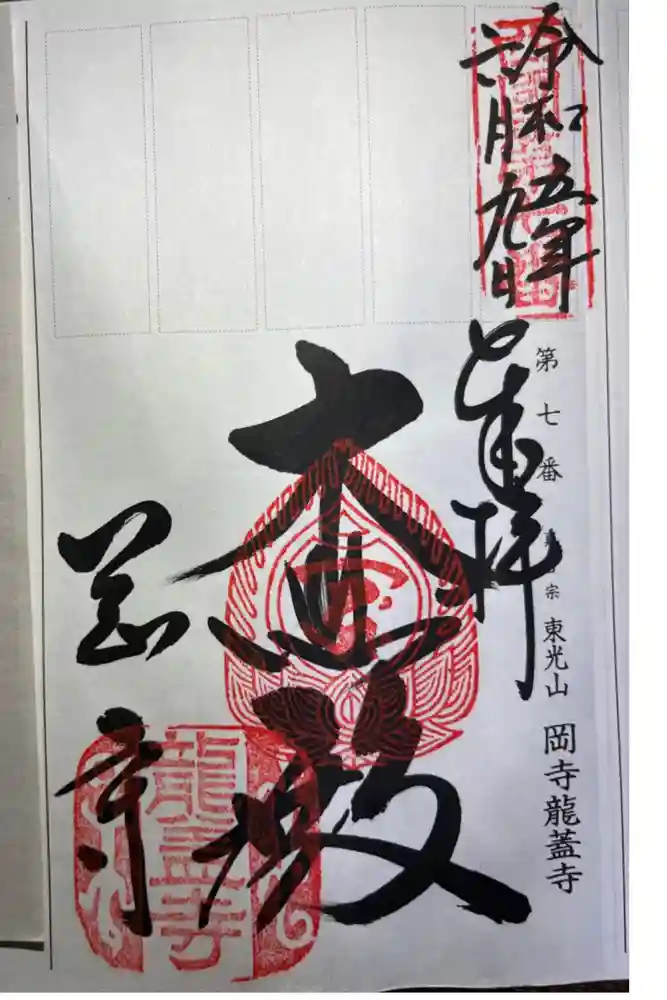 令和五年
六月九日
奉拝
第七番 宗 東光山 岡寺龍蓋寺
大悲殿
岡寺
龍蓋寺